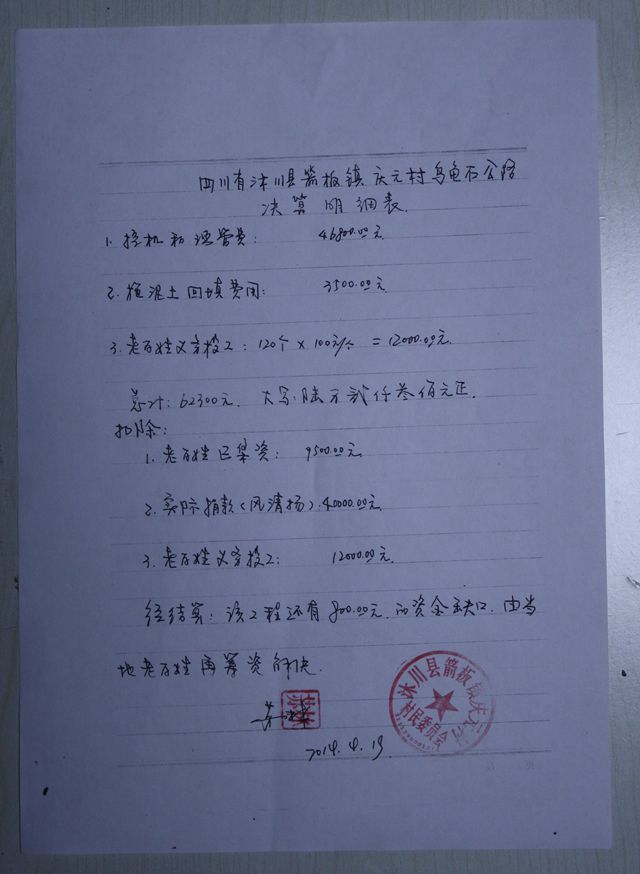 四川省沐川县箭板镇庆元村乌龟石公路
决算明细表
1. 挖机和涵管费: 46800.00元
2. 混土回填费用: 3500.00元.
3. 老百姓义务投工: 120个 × 100元/个 = 12000.00元.
总计: 62300元. 大写: 陆万贰仟叁佰元正.
扣除:
1. 老百姓已集资: 9500.00元.
2. 实际捐款(风清扬): 40000.00元.
3. 老百姓义务投工: 12000.00元.
经结算: 该工程还有800.00元的资金缺口. 由当
地老百姓再筹资解决.
沐川县箭板镇庆元村
村民委员会
2014.4.13